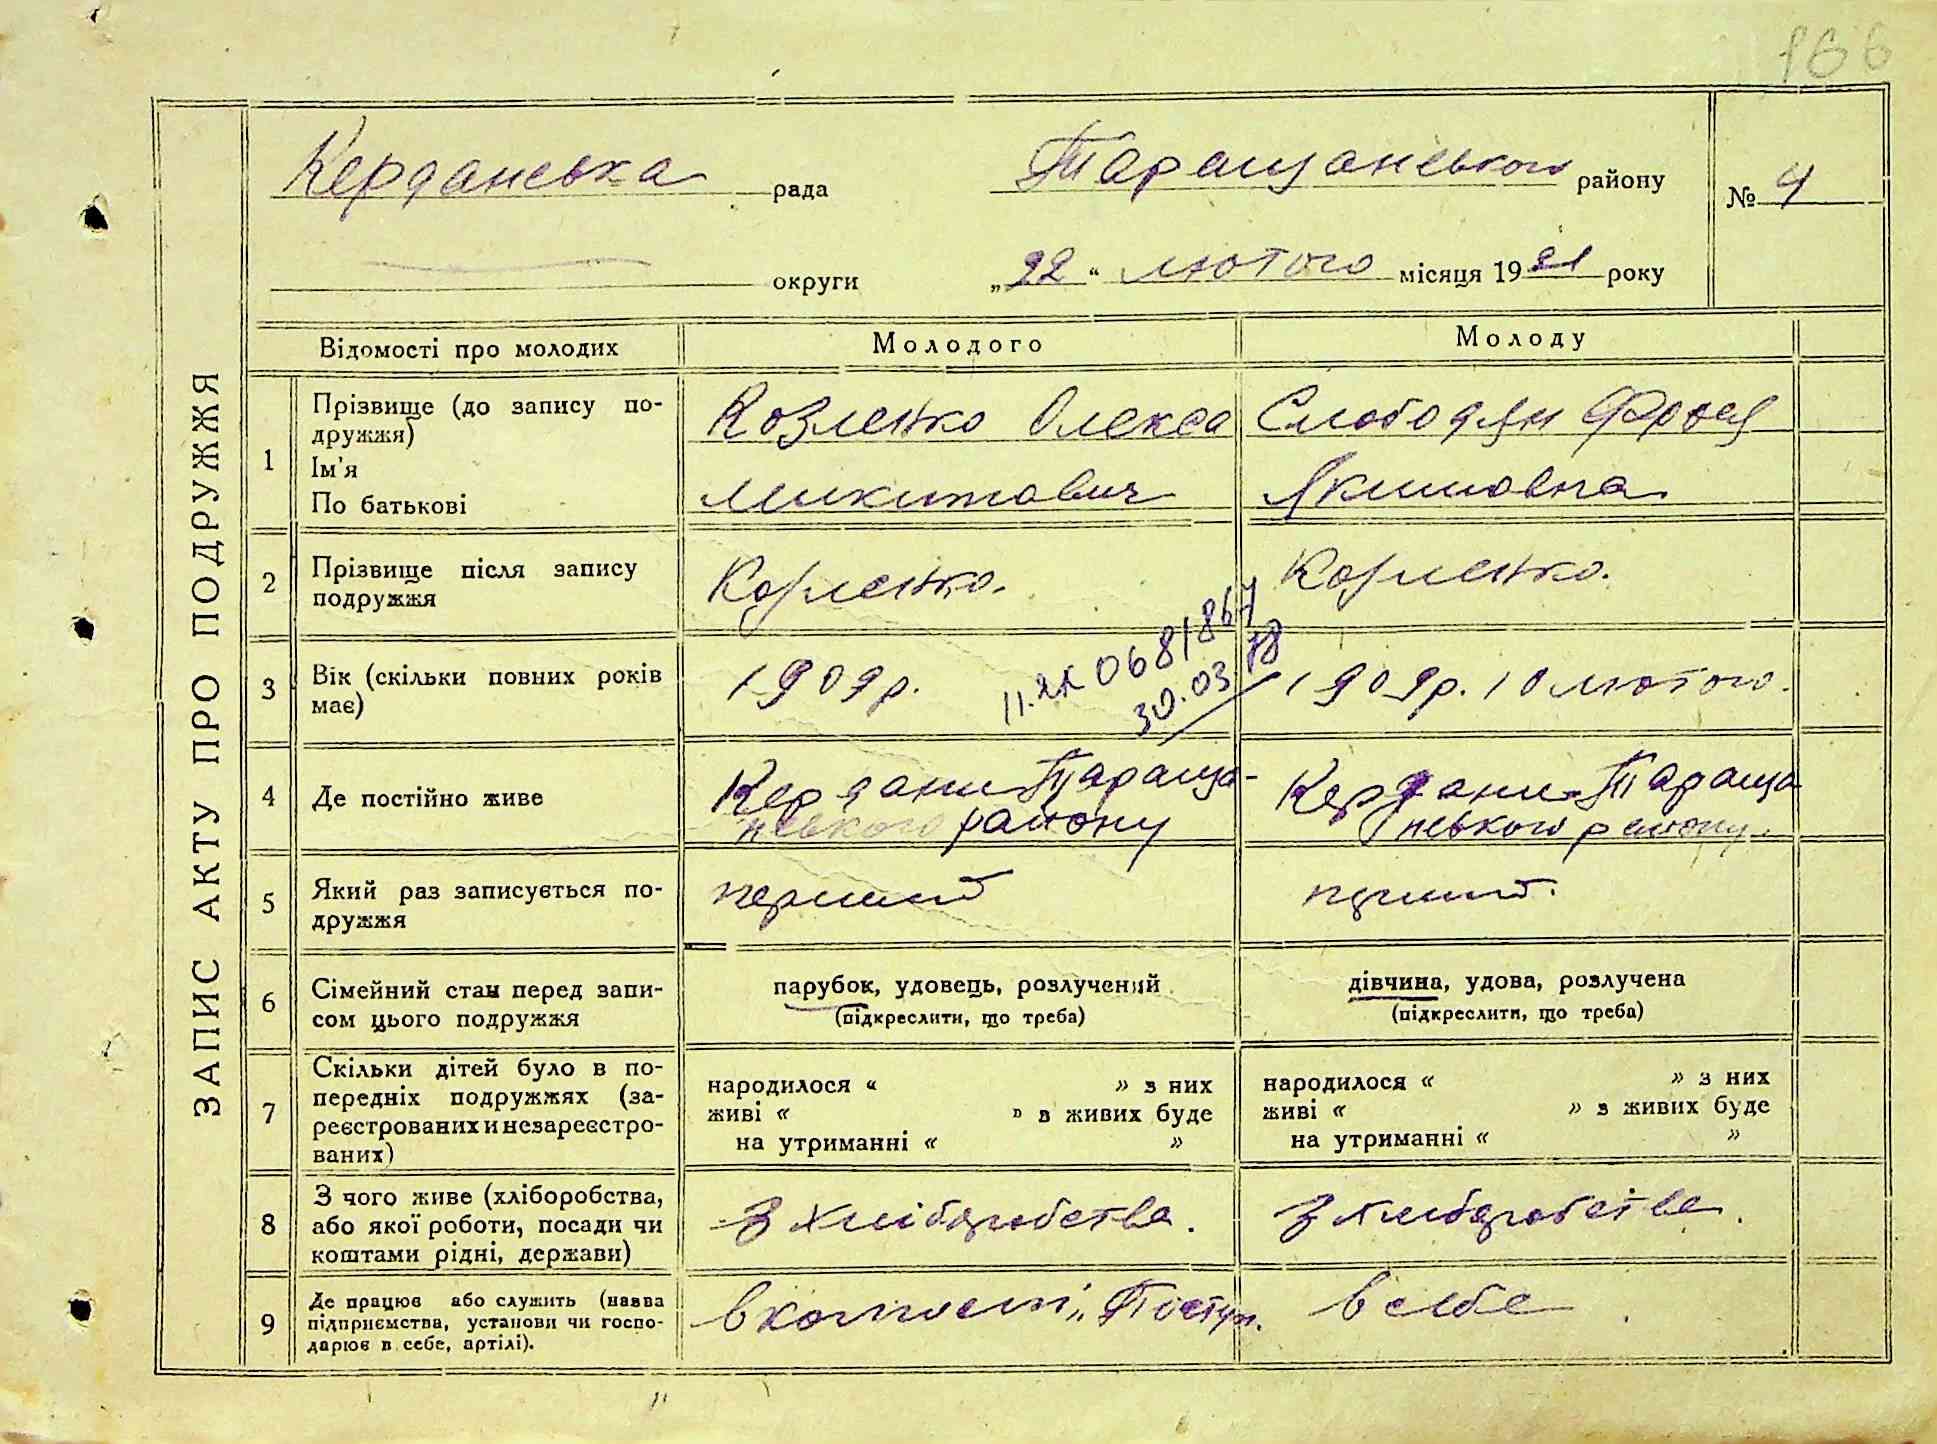 166
ЗАПИС АКТУ ПРО ПОДРУЖЖЯ
Керданська рада
Таращанського району
№ 4
округи
„22“ лютого місяця 1931 року
Відомості про молодих
Молодого
Молоду
1
Прізвище (до запису по-
дружжя)
Ім'я
По батькові
Козленко Олекса
Микитович
Слободян Фрося
Якимовна
2
Прізвище після запису
подружжя
Козленко.
Козленко.
3
Вік (скільки повних років
має)
1909р.
0681867
30.03.78
1909р. 10 лютого.
4
Де постійно живе
Кердани Тараща-
нського району
Кердани Тараща
нського району.
5
Який раз записується по-
дружжя
перший
перший.
6
Сімейний стан перед запи-
сом цього подружжя
парубок, удовець, розлучений
(підкреслити, що треба)
дівчина, удова, розлучена
(підкреслити, що треба)
7
Скільки дітей було в по-
передніх подружжях (за-
реєстрованих и незареєстро-
ваних)
народилося “ » з них
живі « » з живих буде
на утриманні « »
народилося « » з них
живі « » з живих буде
на утриманні « »
8
З чого живе (хліборобства,
або якої роботи, посади чи
коштами рідні, держави)
З хліборобства.
З хліборобства.
9
Де працює або служить (назва
підприємства, установи чи госпо-
дарює в себе, артілі).
в колгоспі „Поступ.
в себе